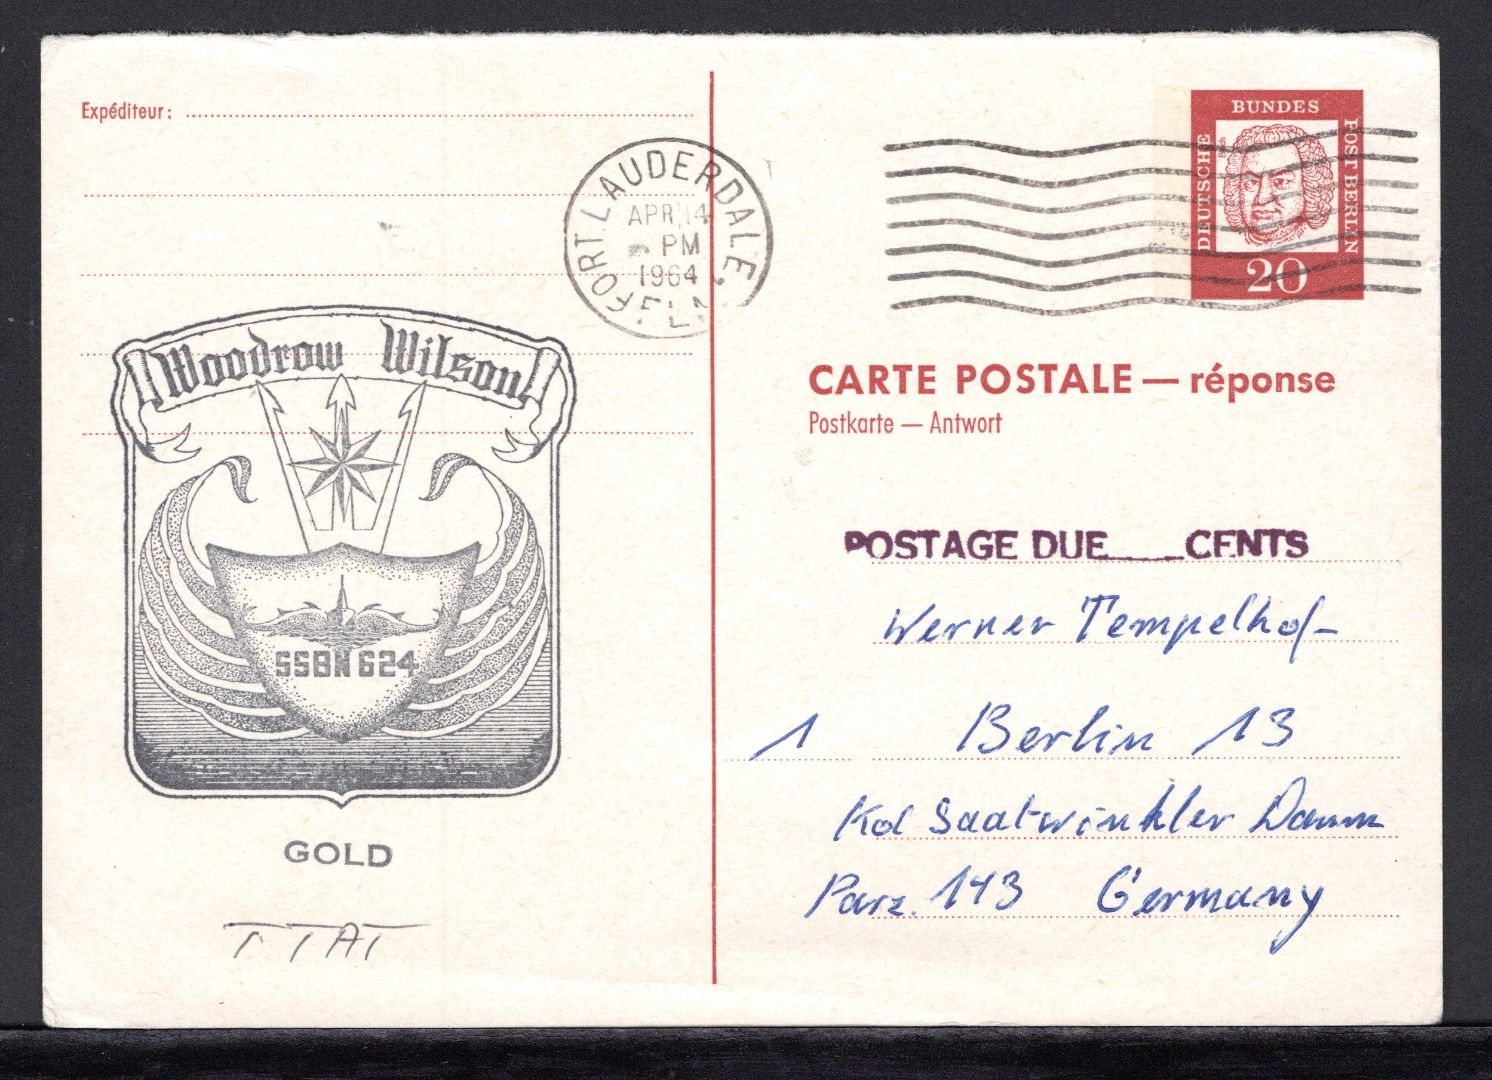 Expéditeur:
FORT LAUDERDALE,
APR 14
PM
1964
FLA
DEUTSCHE BUNDES POST BERLIN
20
CARTE POSTALE — réponse
Postkarte — Antwort
Woodrow Wilson
SSBN 624
GOLD
POSTAGE DUE____CENTS
Werner Tempelhof
1 Berlin 13
Kol Saatwinkler Damm
Parz. 143 Germany